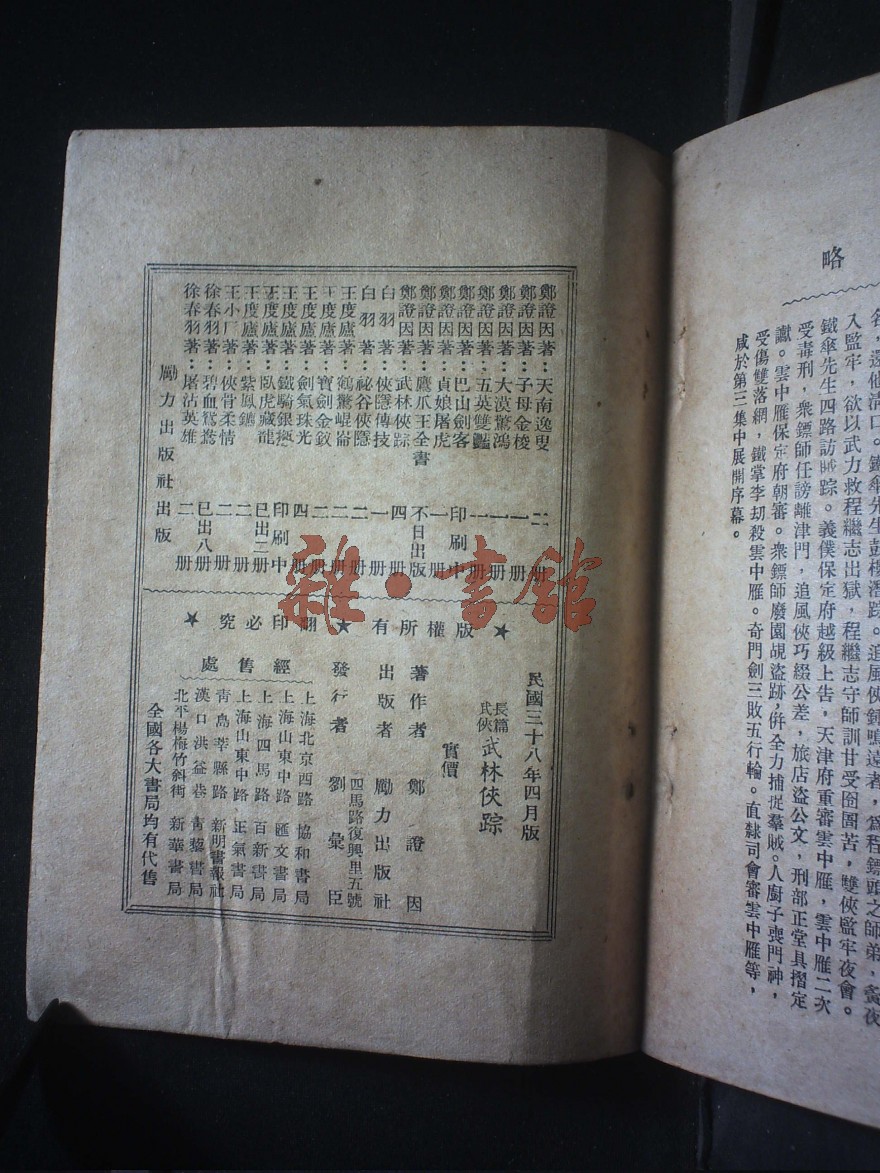 略
鐵傘先生四路訪賊踪。義僕保定府越級上告，天津府重審雲中雁，雲中雁二次
入監牢，欲以武力救程繼志出獄，程繼志守師訓甘受囹圄苦，雙俠監牢夜會。
受毒刑，衆鏢師任謗離津門，追風俠巧綴公差，旅店盜公文，刑部正堂具摺定
讞。雲中雁保定府朝審。衆鏢師廢園覘盜跡，倂全力捕捉羣賊。人廚子喪門神，
受傷雙落網，鐵掌李刧殺雲中雁。奇門劍三敗五行輪。直隸司會審雲中雁等，
咸於第三集中展開序幕。
鄭證因著：天南逸叟 二册
鄭證因著：子母金梭 一册
鄭證因著：大漠驚鴻 一册
鄭證因著：五英雙艷 一册
鄭證因著：巴山劍客 印刷中
鄭證因著：貞娘屠虎 一册
鄭證因著：鷹爪王全書 不日出版
鄭證因著：武林俠踪 四册
白羽著：俠隱傳技 一册
白羽著：祕谷俠隱 二册
王度廬著：鶴驚崐崙 二册
王度廬著：寶劍金釵 二册
王度廬著：劍氣珠光 四册
王度廬著：鐵騎銀瓶 印刷中
王度廬著：臥虎藏龍 已出二册
王度廬著：紫鳳鑣 二册
王小厂著：俠骨柔情 二册
徐春羽著：碧血鴛鴦 已出八册
徐春羽著：屠沽英雄 二册
勵力出版社出版
★版權所有★翻印必究★
民國三十八年四月版
長篇武俠 武林俠踪
實價
著作者 鄭證因
出版者 勵力出版社
四馬路復興里五號
發行者 劉彙臣
經售處
上海北京西路 協和書局
上海山東中路 匯文書局
上海四馬路 百新書局
上海山東中路 正氣書局
靑島莘縣路 新明書報社
漢口洪益巷 靑藜書局
北平楊梅竹斜街 新華書局
全國各大書局均有代售
雜·書館